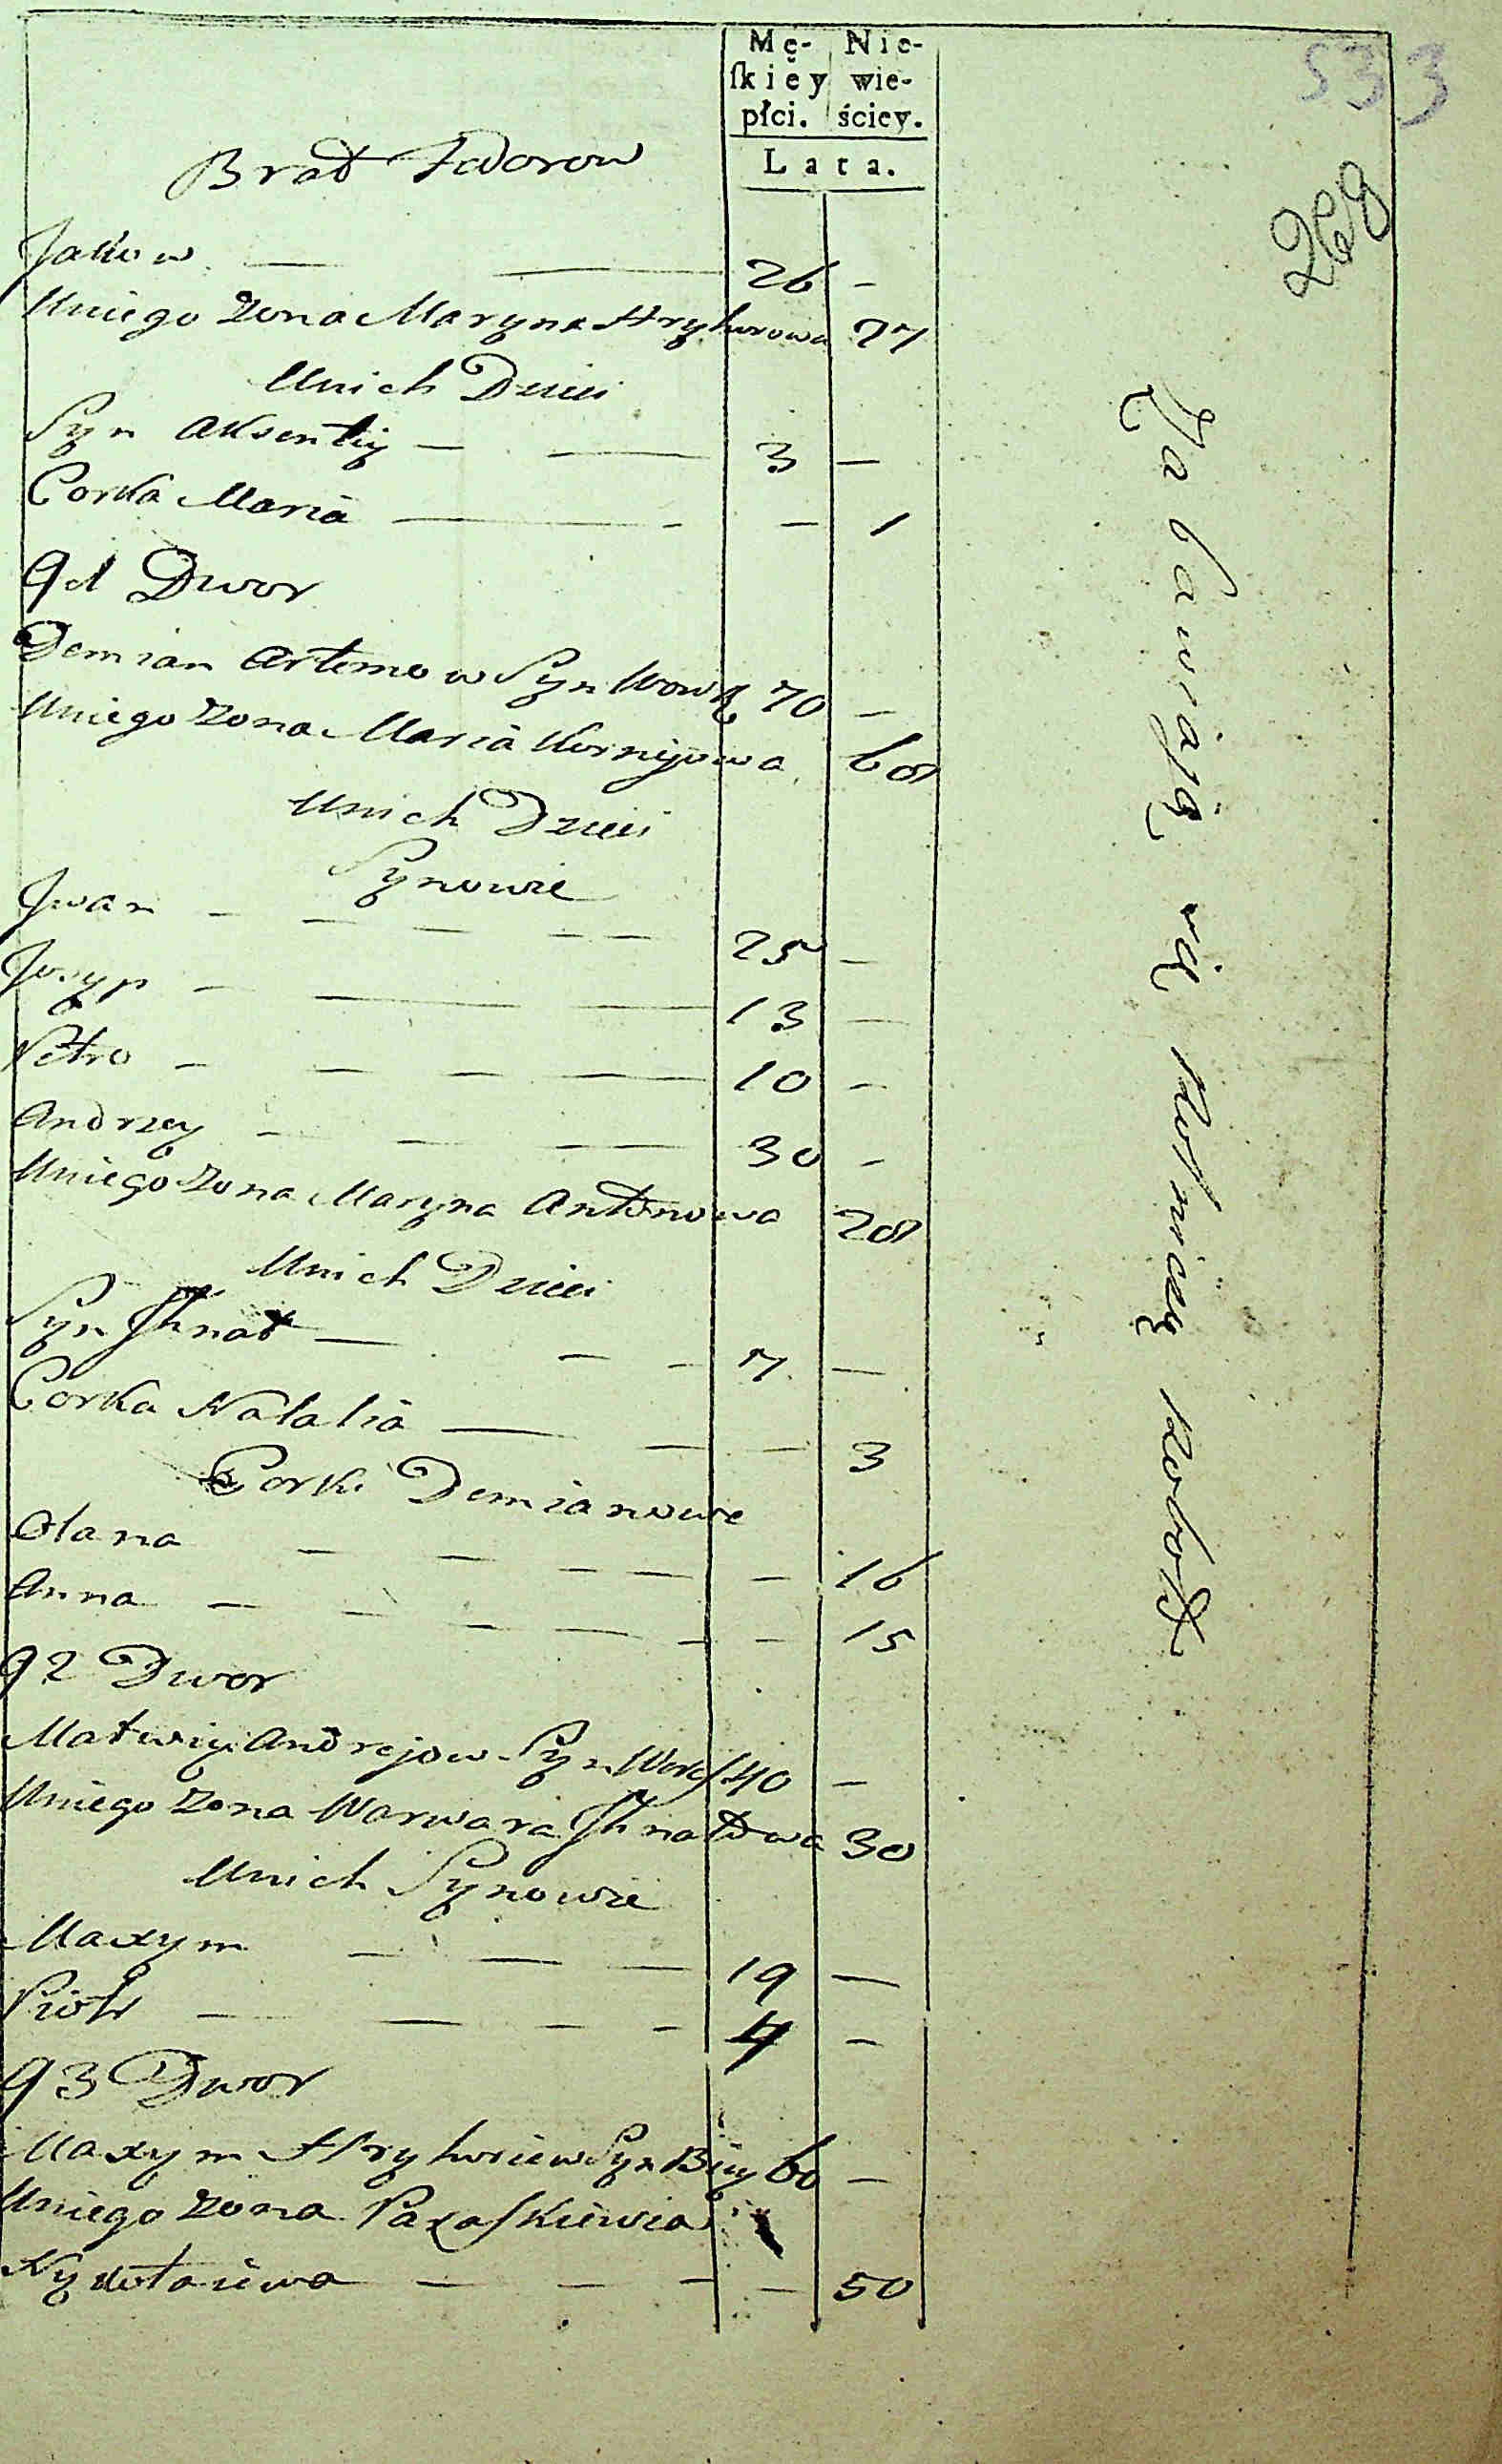 Mę- Nie-
ſkiėy wie-
płci. ściey.
Lata.
533
268
Brat Fedorow
Jakow — — 26 -
Uniego Zona Maryna Hryhorowa 27
Unich Dzieci
Syn Aksentiy — — 3 —
Corka Maria — - — 1
91 Dwor
Demian Artemow Syn Wowk 70 —
Uniego Zona Maria Kornijowa 68
Unich Dzieci
Synowie
Jwan — — — — — 25 —
Josyp — — — 13 —
Petro — — — — 10 -
Andrzey — — — 30 -
Uniego Zona Maryna Antonowa 28
Unich Dzieci
Syn Jhnat — — - 7 —
Corka Natalia — — — 3
Corki Demianowe
Olana — — — — — 16
Anna — — — — — - 15
92 Dwor
Matwiy Andrejow Syn 40 —
Uniego Zona Warwara Jhnatowa 30
Unich Synowie
Maxym — — — 19 —
Piotr — — — - 4 —
93 Dwor
Maxym Hryhoriew Syn 60 —
Uniego Zona Paraskiewia
Nykołaiewa — — — — 50
Zabawiaią się Rolniczą Robotą